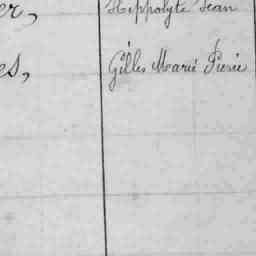 er, Hippolyte Jean
es, Gilles Marie Pierre